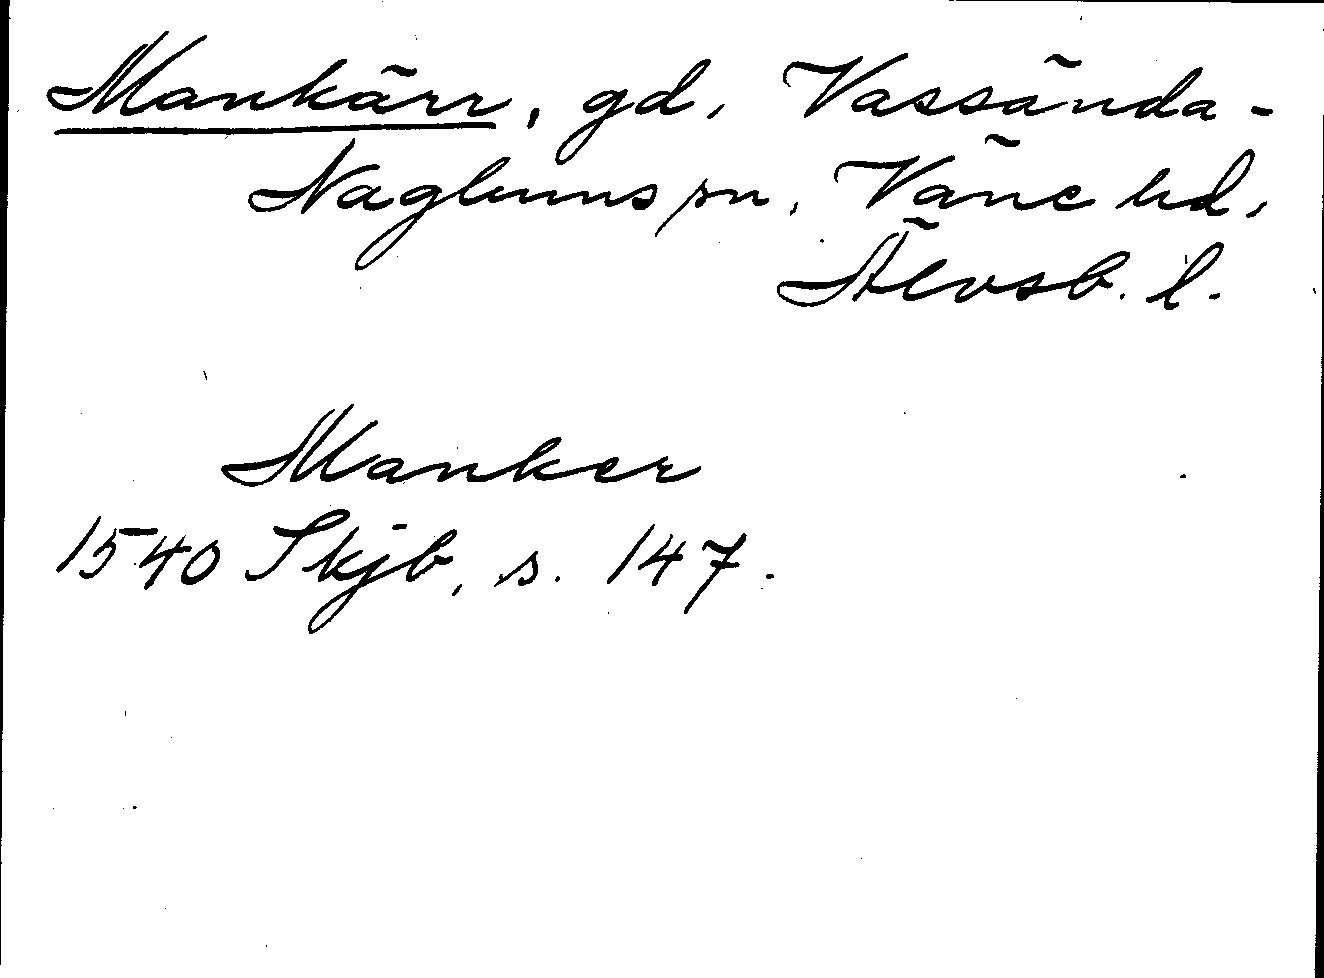 Mankärr, gd, Vassända-
Naglums sn, Väne hd,
Älvsb. l.
Manker
1540 Skjb, s. 147.